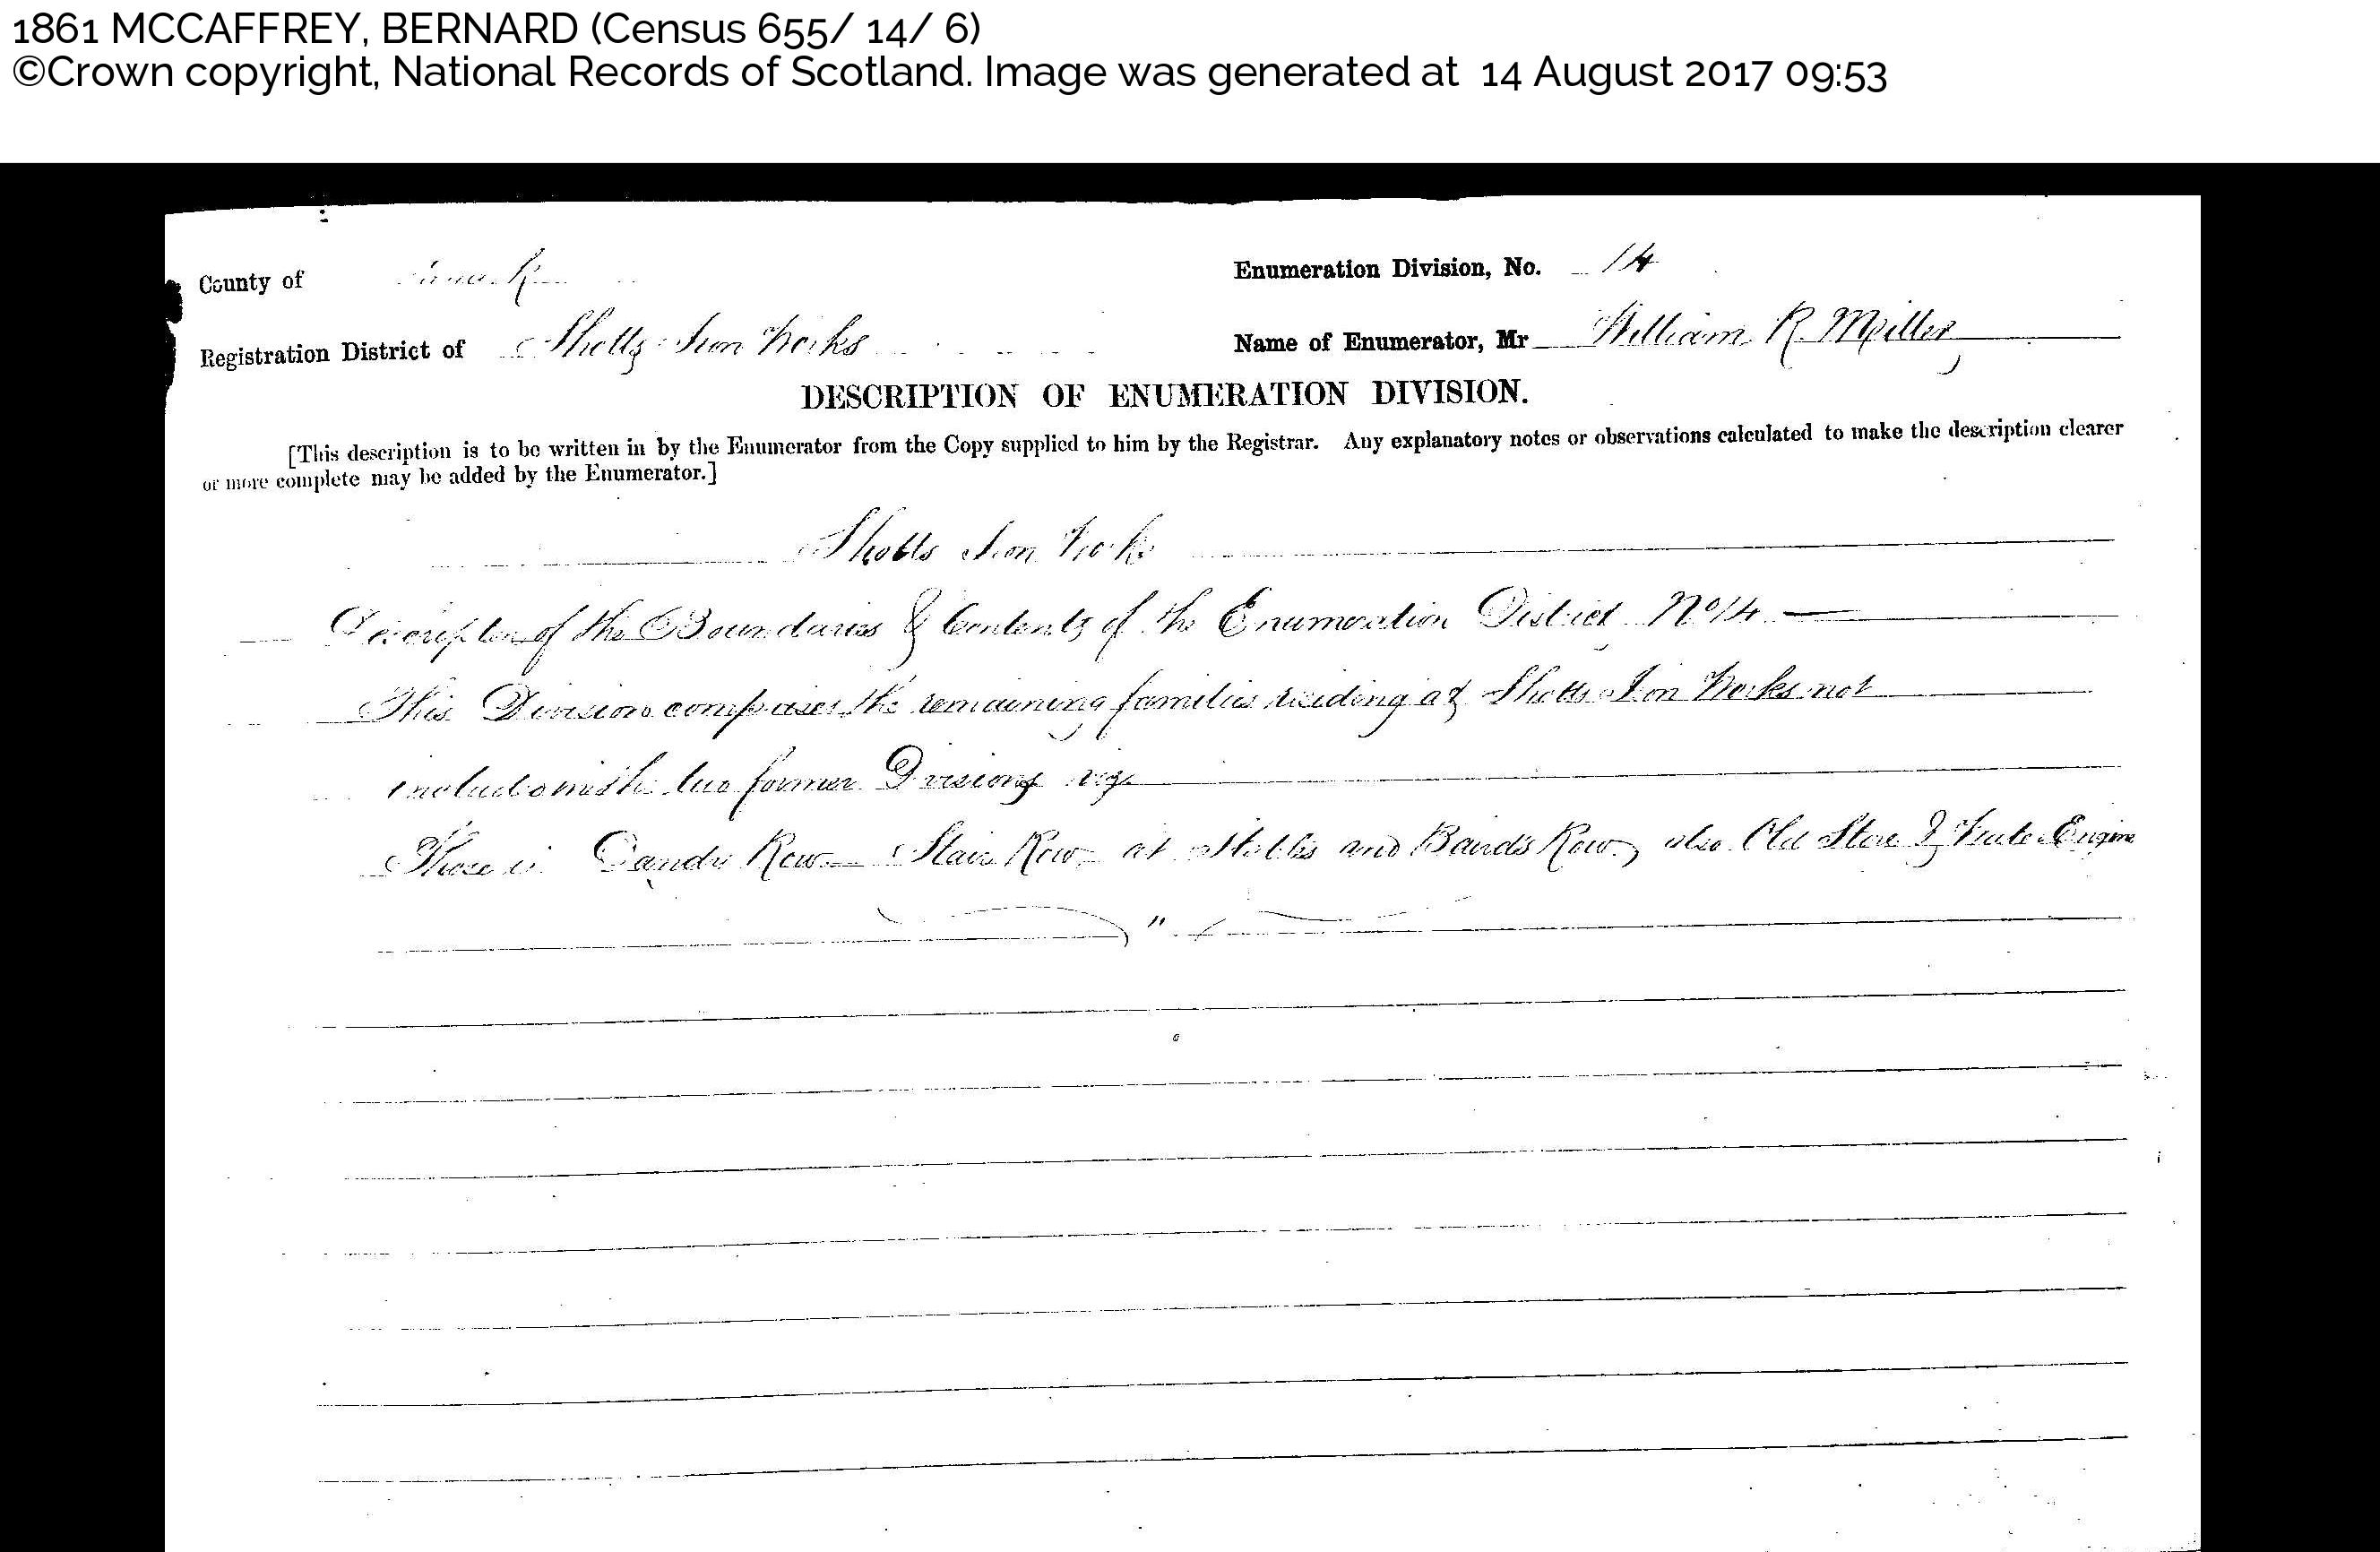 1861 MCCAFFREY, BERNARD (Census 655/ 14/ 6)
©Crown copyright, National Records of Scotland. Image was generated at 14 August 2017 09:53
County of Lanark
Enumeration Division, No. 14
Registration District of Shotts Iron Works
Name of Enumerator, Mr William R. Miller
DESCRIPTION OF ENUMERATION DIVISION.
[This description is to be written in by the Enumerator from the Copy supplied to him by the Registrar. Any explanatory notes or observations calculated to make the description clearer
or more complete may be added by the Enumerator.]
Shotts Iron Works
Description of the Boundaries & Contents of the Enumeration District No 14
This Division comprises the remaining families residing at Shotts Iron Works not
included in the two former Divisions viz
Those in Dandy Row Stair Row at Stables and Bairds Row, also Old Store & Engine